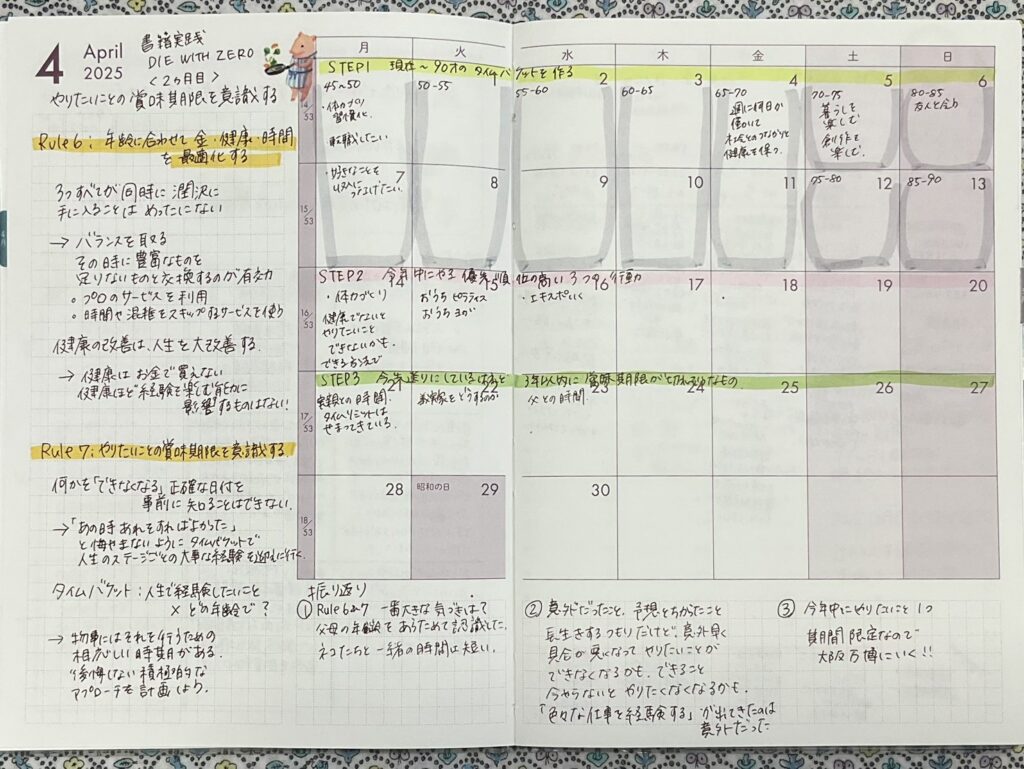 4 April 2025
書籍実践
DIE WITH ZERO
<2ヶ月目>
やりたいことの賞味期限を意識する
Rule6: 年齢に合わせて金・健康・時間
を最適化する
3つすべてが同時に潤沢に
手に入ることはめったにない
→ バランスを取る
その時に豊富なものを
足りないものと交換するのが有効
・プロのサービスを利用
・時間や混雑をスキップするサービスを使う
健康の改善は、人生を大改善する.
→ 健康はお金で買えない
健康ほど経験を楽しむ能力に
影響するものはない!
Rule7: やりたいことの賞味期限を意識する
何かを「できなくなる」正確な日付を
事前に知ることはできない.
→「あの時あれをすればよかった」
と悔やまないようにタイムバケットで
人生のステージごとの大事な経験を迎えに行く.
タイムバケット: 人生で経験したいこと
× どの年齢で?
→ 物事にはそれを行うための
相応しい時期がある.
"後悔しない積極的な
アプローチを計画しよう.
月 火 水 木 金 土 日
STEP1 現在~90才のタイムバケットを作る
1 2 3 4 5 6
14/53
45~50
・体力づくり
習慣化.
転職したい.
・好きなことを
50-55
55-60
60-65
65-70
週に何日か
働いて
社会とのつながりと
健康を保つ.
70-75
暮らしを
楽しむ
創作を
楽しむ.
80-85
友人と会う
7 8 9 10 11 12 13
15/53
75-80
85-90
STEP2 今年中にやる優先順位の高い3つの行動
14 15 16 17 18 19 20
16/53
・体力づくり
健康でないと
やりたいこと
できないかも.
おうちピラティス
おうちヨガ
・エキスポいく
STEP3 今先送りにしているけれど 3年以内に賞味期限がきれそうなもの.
21 22 23 24 25 26 27
17/53
実親との時間.
タイムリミットは
せまってきている.
お嫁をどうするか
父との時間.
28 昭和の日 29 30
18/53
振り返り
① Rule6と7 一番大きな気づきは?
父母の年齢をあらためて認識した.
ネコたちと一緒の時間は短い.
② 意外だったこと、予想とちがったこと
長生きするつもりだけど、意外早く
具合が悪くなってやりたいことが
できなくなるかも. できること
今やらないとやりたくなくなるかも.
「色々な仕事を経験する」が出てきたのは
意外だった
③ 今年中にやりたいこと1つ
期間限定なので
大阪万博にいく!!